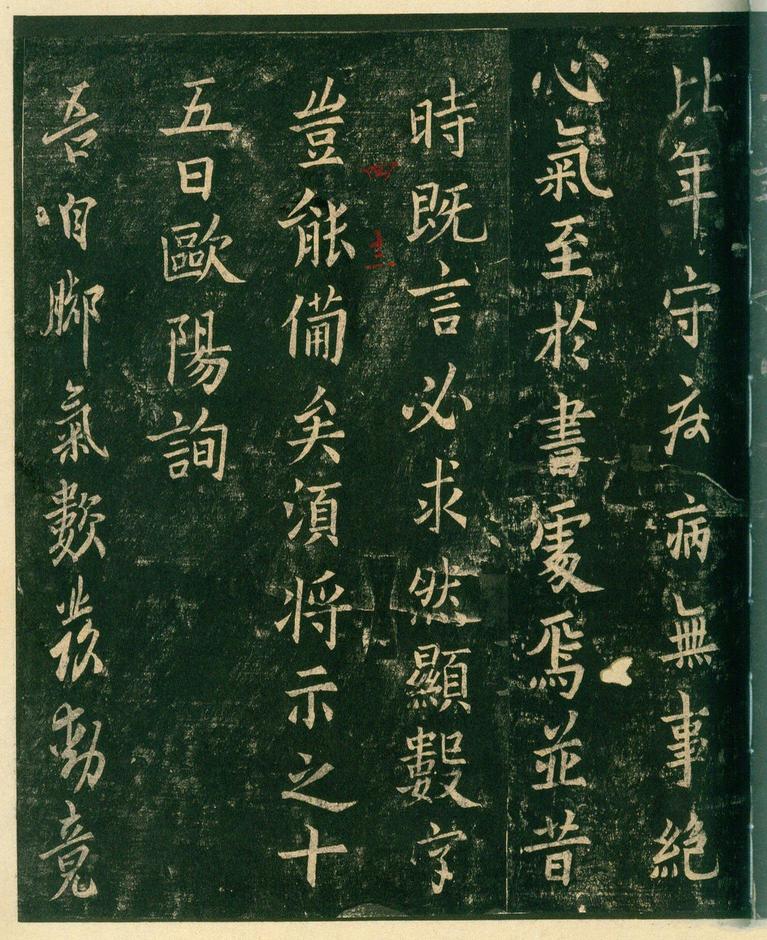 比年守疾病無事絕
心氣至於書處焉並昔
時既言必求然顯數字
豈能備矣須將示之十
五日歐陽詢
吾自腳氣數發動竟